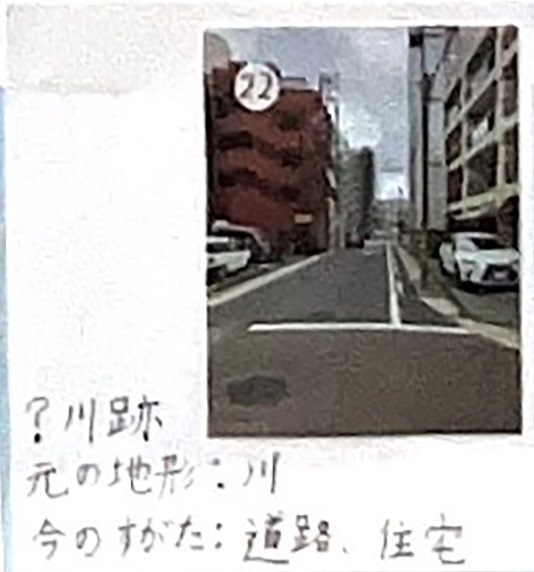 22
?川跡
元の地形:川
今のすがた:道路、住宅